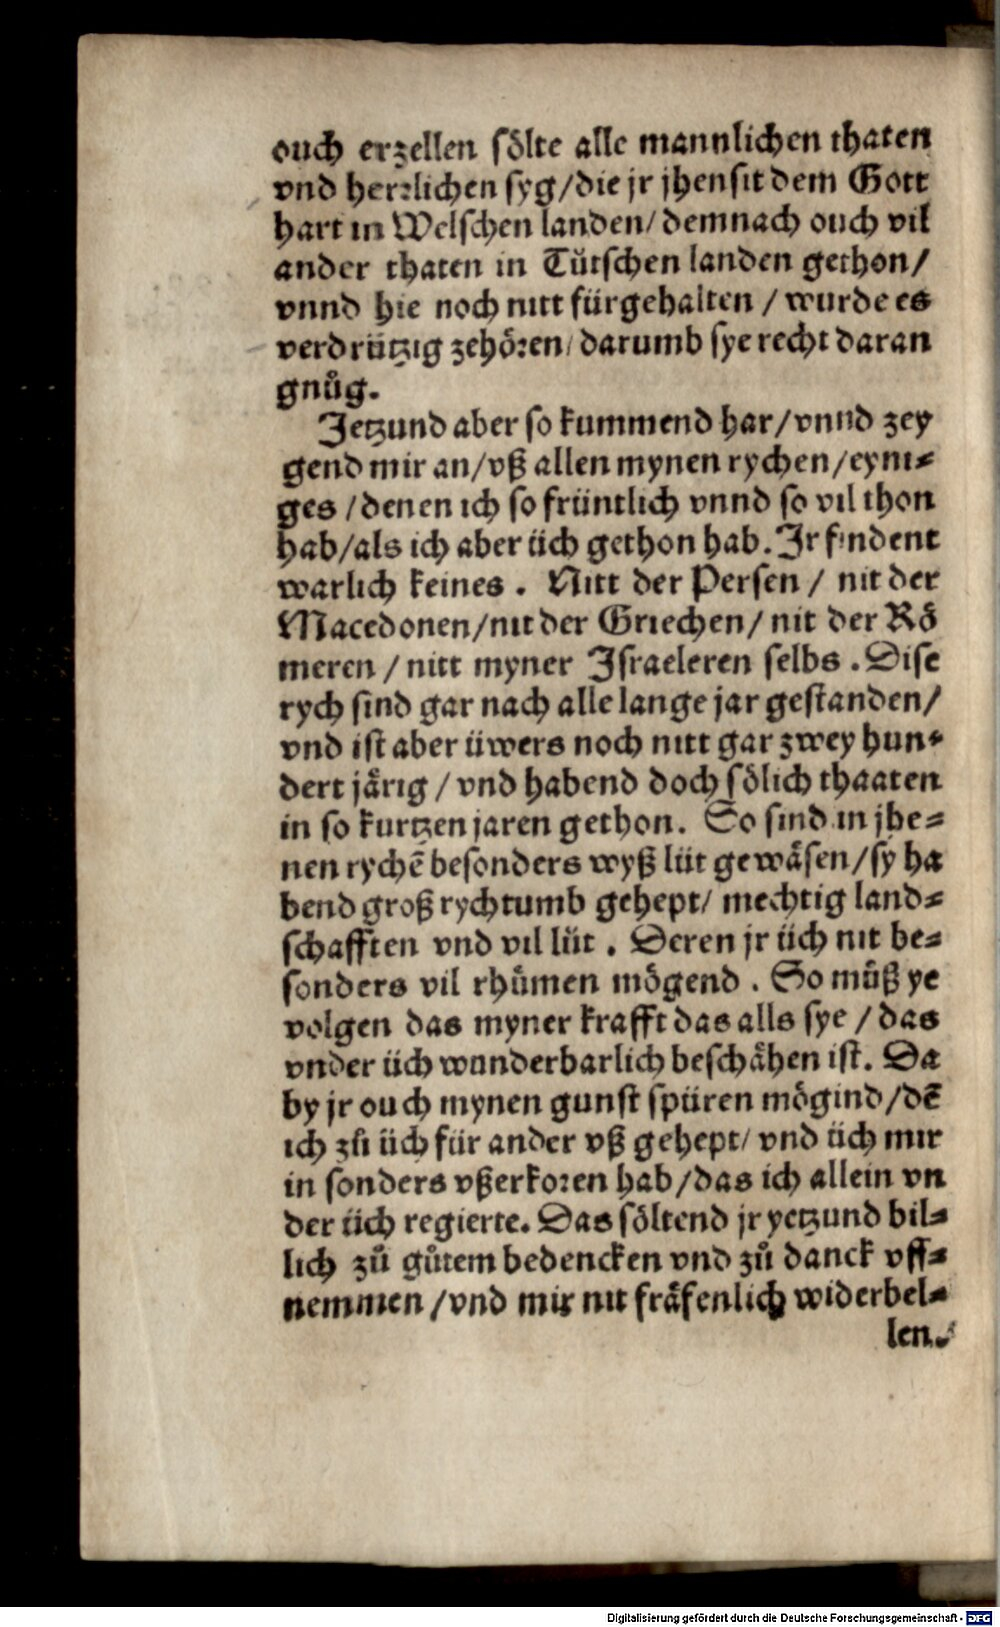 ouch erzellen sölte alle mannlichen thaten
vnd herrlichen syg/die jr jhensit dem Gott
hart in Welschen landen/demnach ouch vil
ander thaten in Tütschen landen gethon/
vnnd hie noch nitt fürgehalten / wurde es
verdrützig zehören/darumb sye recht daran
gnůg.
Jetzund aber so kummend har/vnnd zey
gend mir an/vß allen mynen rychen/eyni⸗
ges /denen ich so früntlich vnnd so vil thon
hab/als ich aber üch gethon hab. Jr findent
warlich keines . Nitt der Persen / nit der
Macedonen/nit der Griechen/ nit der Rö
meren /nitt myner Jsraeleren selbs . Dise
rych sind gar nach alle lange jar gestanden/
vnd ist aber üwers noch nitt gar zwey hun⸗
dert järig / vnd habend doch sölich thaaten
in so kurtzen jaren gethon. So sind in jhe⸗
nen rychē besonders wyß lüt gewäsen/sy ha
bend groß rychtumb gehept/ mechtig land⸗
schafften vnd vil lüt . Deren jr üch nit be⸗
sonders vil rhůmen mögend . So můß ye
volgen das myner krafft das alls sye / das
vnder üch wunderbarlich beschähen ist. Da
by jr ouch mynen gunst spüren mögind/dē
ich zů üch für ander vß gehept/ vnd üch mir
in sonders vßerkoren hab/das ich allein vn
der üch regierte. Das söltend jr yetzund bil⸗
lich zů gůtem bedencken vnd zů danck vff⸗
nemmen /vnd mir nit fräfenlich widerbel⸗
len.
Digitalisierung gefördert durch die Deutsche Forschungsgemeinschaft - DFG